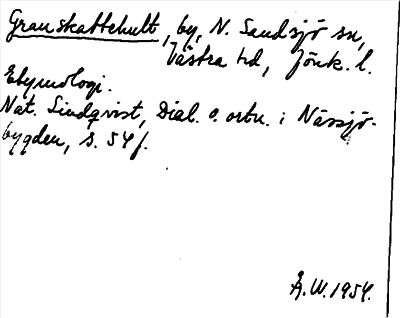 Granskattehult, by, N. Sandsjö sn,
Västra hd, Jönk. l.
Etymologi.
Nat. Lindqvist, Dial. o. ortn. i Nässjö-
bygden, s. 54 f.
Å.W. 1954.